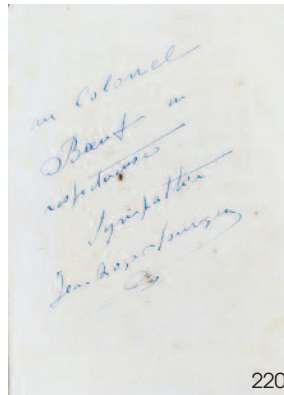 au Colonel
Bœuf en
respectueuse
Sympathie
Jean
220